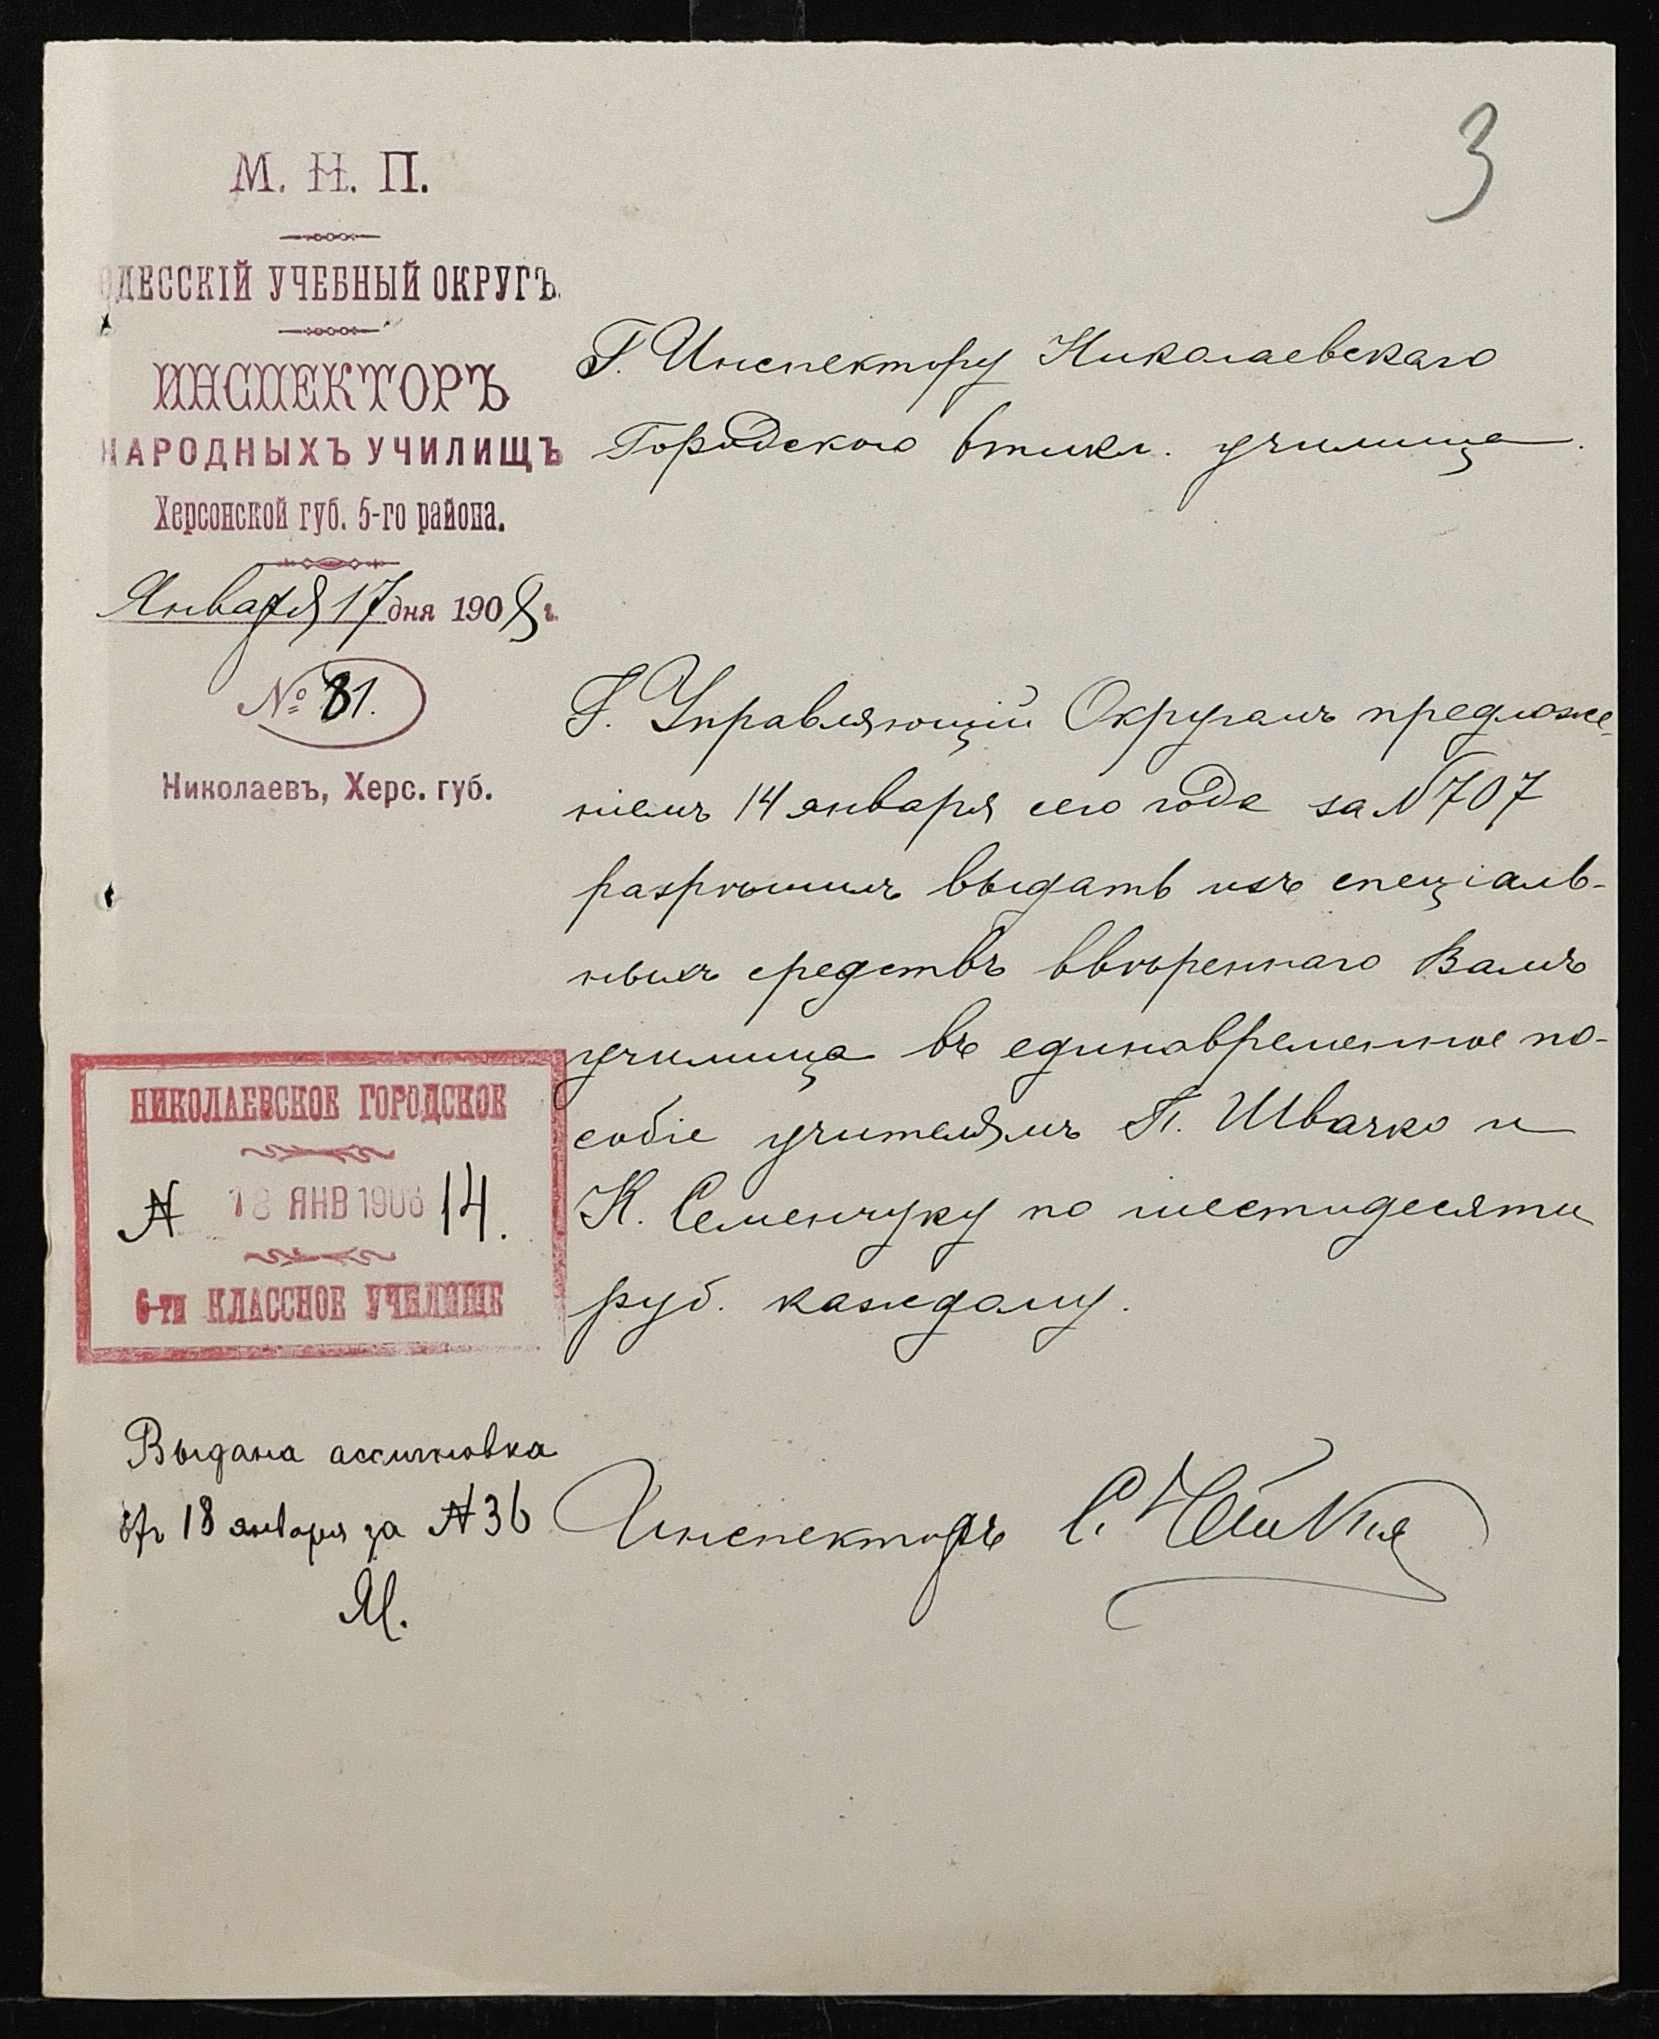 3
М. Н. П.
ОДЕССКІЙ УЧЕБНЫЙ ОКРУГЪ.
ИНСПЕКТОРЪ
НАРОДНЫХЪ УЧИЛИЩЪ
Херсонской губ. 5-го района.
Января 17 дня 1908 г.
№ 81.
Николаевъ, Херс. губ.
Г. Инспектору Николаевскаго
Городского 6тикл. училища.
Г. Управляющій Округомъ предложе-
ніемъ 14 января сего года за № 707
разрѣшилъ выдать изъ спеціаль-
ныхъ средствъ ввѣреннаго Вамъ
училища въ единовременное по-
собіе учителямъ П. Швачко и
К. Семенчуку по шестидесяти
руб. каждому.
НИКОЛАЕВСКОЕ ГОРОДСКОЕ
№ 18 ЯНВ 1908 14.
6-ти КЛАССНОЕ УЧИЛИЩЕ
Выдана ассигновка
отъ 18 января за № 36
М.
Инспекторъ С.